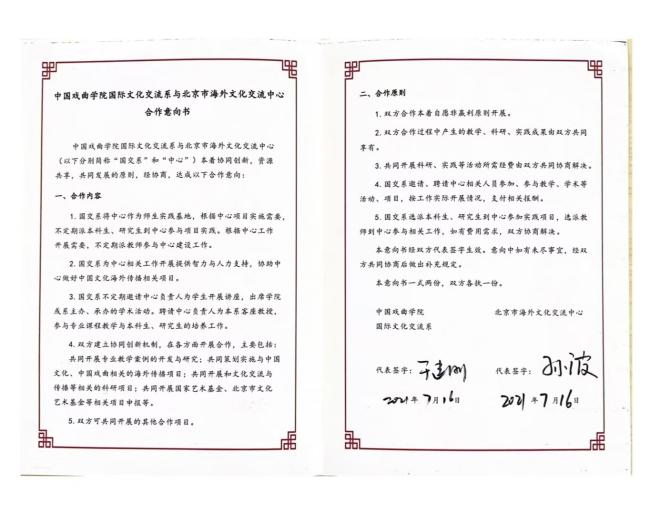 中国戏曲学院国际文化交流系与北京市海外文化交流中心
合作意向书
中国戏曲学院国际文化交流系与北京市海外文化交流中心
（以下分别简称“国交系”和“中心”）本着协同创新，资源
共享，共同发展的原则，经协商，达成以下合作意向：
一、合作内容
1. 国交系将中心作为师生实践基地，根据中心项目实施需要，
不定期派本科生、研究生到中心参与项目实践。根据中心工作
开展需要，不定期派教师参与中心建设工作。
2. 国交系为中心相关工作开展提供智力与人力支持，协助中
心做好中国文化海外传播相关项目。
3. 国交系不定期邀请中心负责人为学生开展讲座，出席学院
或系主办、承办的学术活动。聘请中心负责人为本系客座教授，
参与专业课程教学与本科生、研究生的培养工作。
4. 双方建立协同创新机制，在各方面开展合作，主要包括：
共同开展专业教学案例的开发与研究；共同策划实施与中国
文化、中国戏曲相关的海外传播项目；共同开展和文化交流与
传播等相关的科研项目；共同开展国家艺术基金、北京市文化
艺术基金等相关项目申报等。
5. 双方可共同开展的其他合作项目。
二、合作原则
1. 双方合作本着自愿非赢利原则开展。
2. 双方合作过程中产生的教学、科研、实践成果由双方共同
享有。
3. 共同开展科研、实践等活动所需经费由双方共同协商解决。
4. 国交系邀请、聘请中心相关人员参加、参与教学、学术等
活动、项目，按工作实际开展情况，支付相关报酬。
5. 国交系选派本科生、研究生到中心参加实践项目，选派教
师到中心参与相关工作，如有费用需求，双方协商解决。
本意向书经双方代表签字生效。意向中如有未尽事宜，经双
方共同协商后做出补充规定。
本意向书一式两份，双方各执一份。
中国戏曲学院 北京市海外文化交流中心
国际文化交流系
代表签字：于建刚 代表签字：孙波
2021年7月16日 2021年7月16日